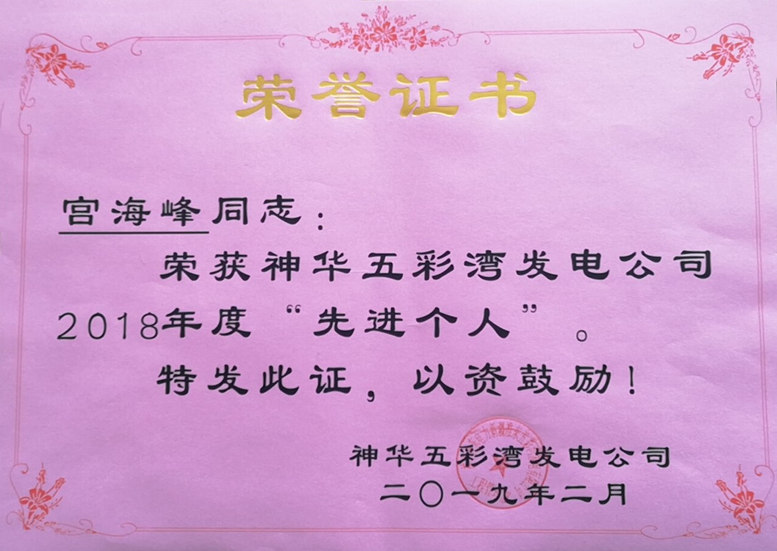 荣誉证书
宫海峰同志：
荣获神华五彩湾发电公司
2018年度“先进个人”。
特发此证，以资鼓励！
神华五彩湾发电公司
二〇一九年二月